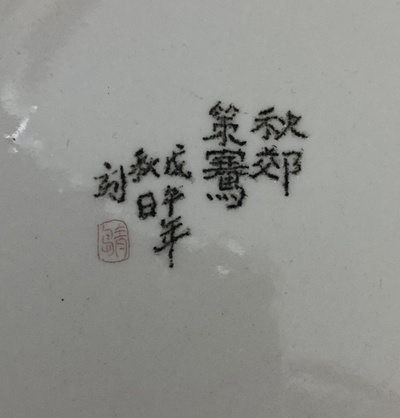 秋郊
策騫
戊午年
秋日
刻